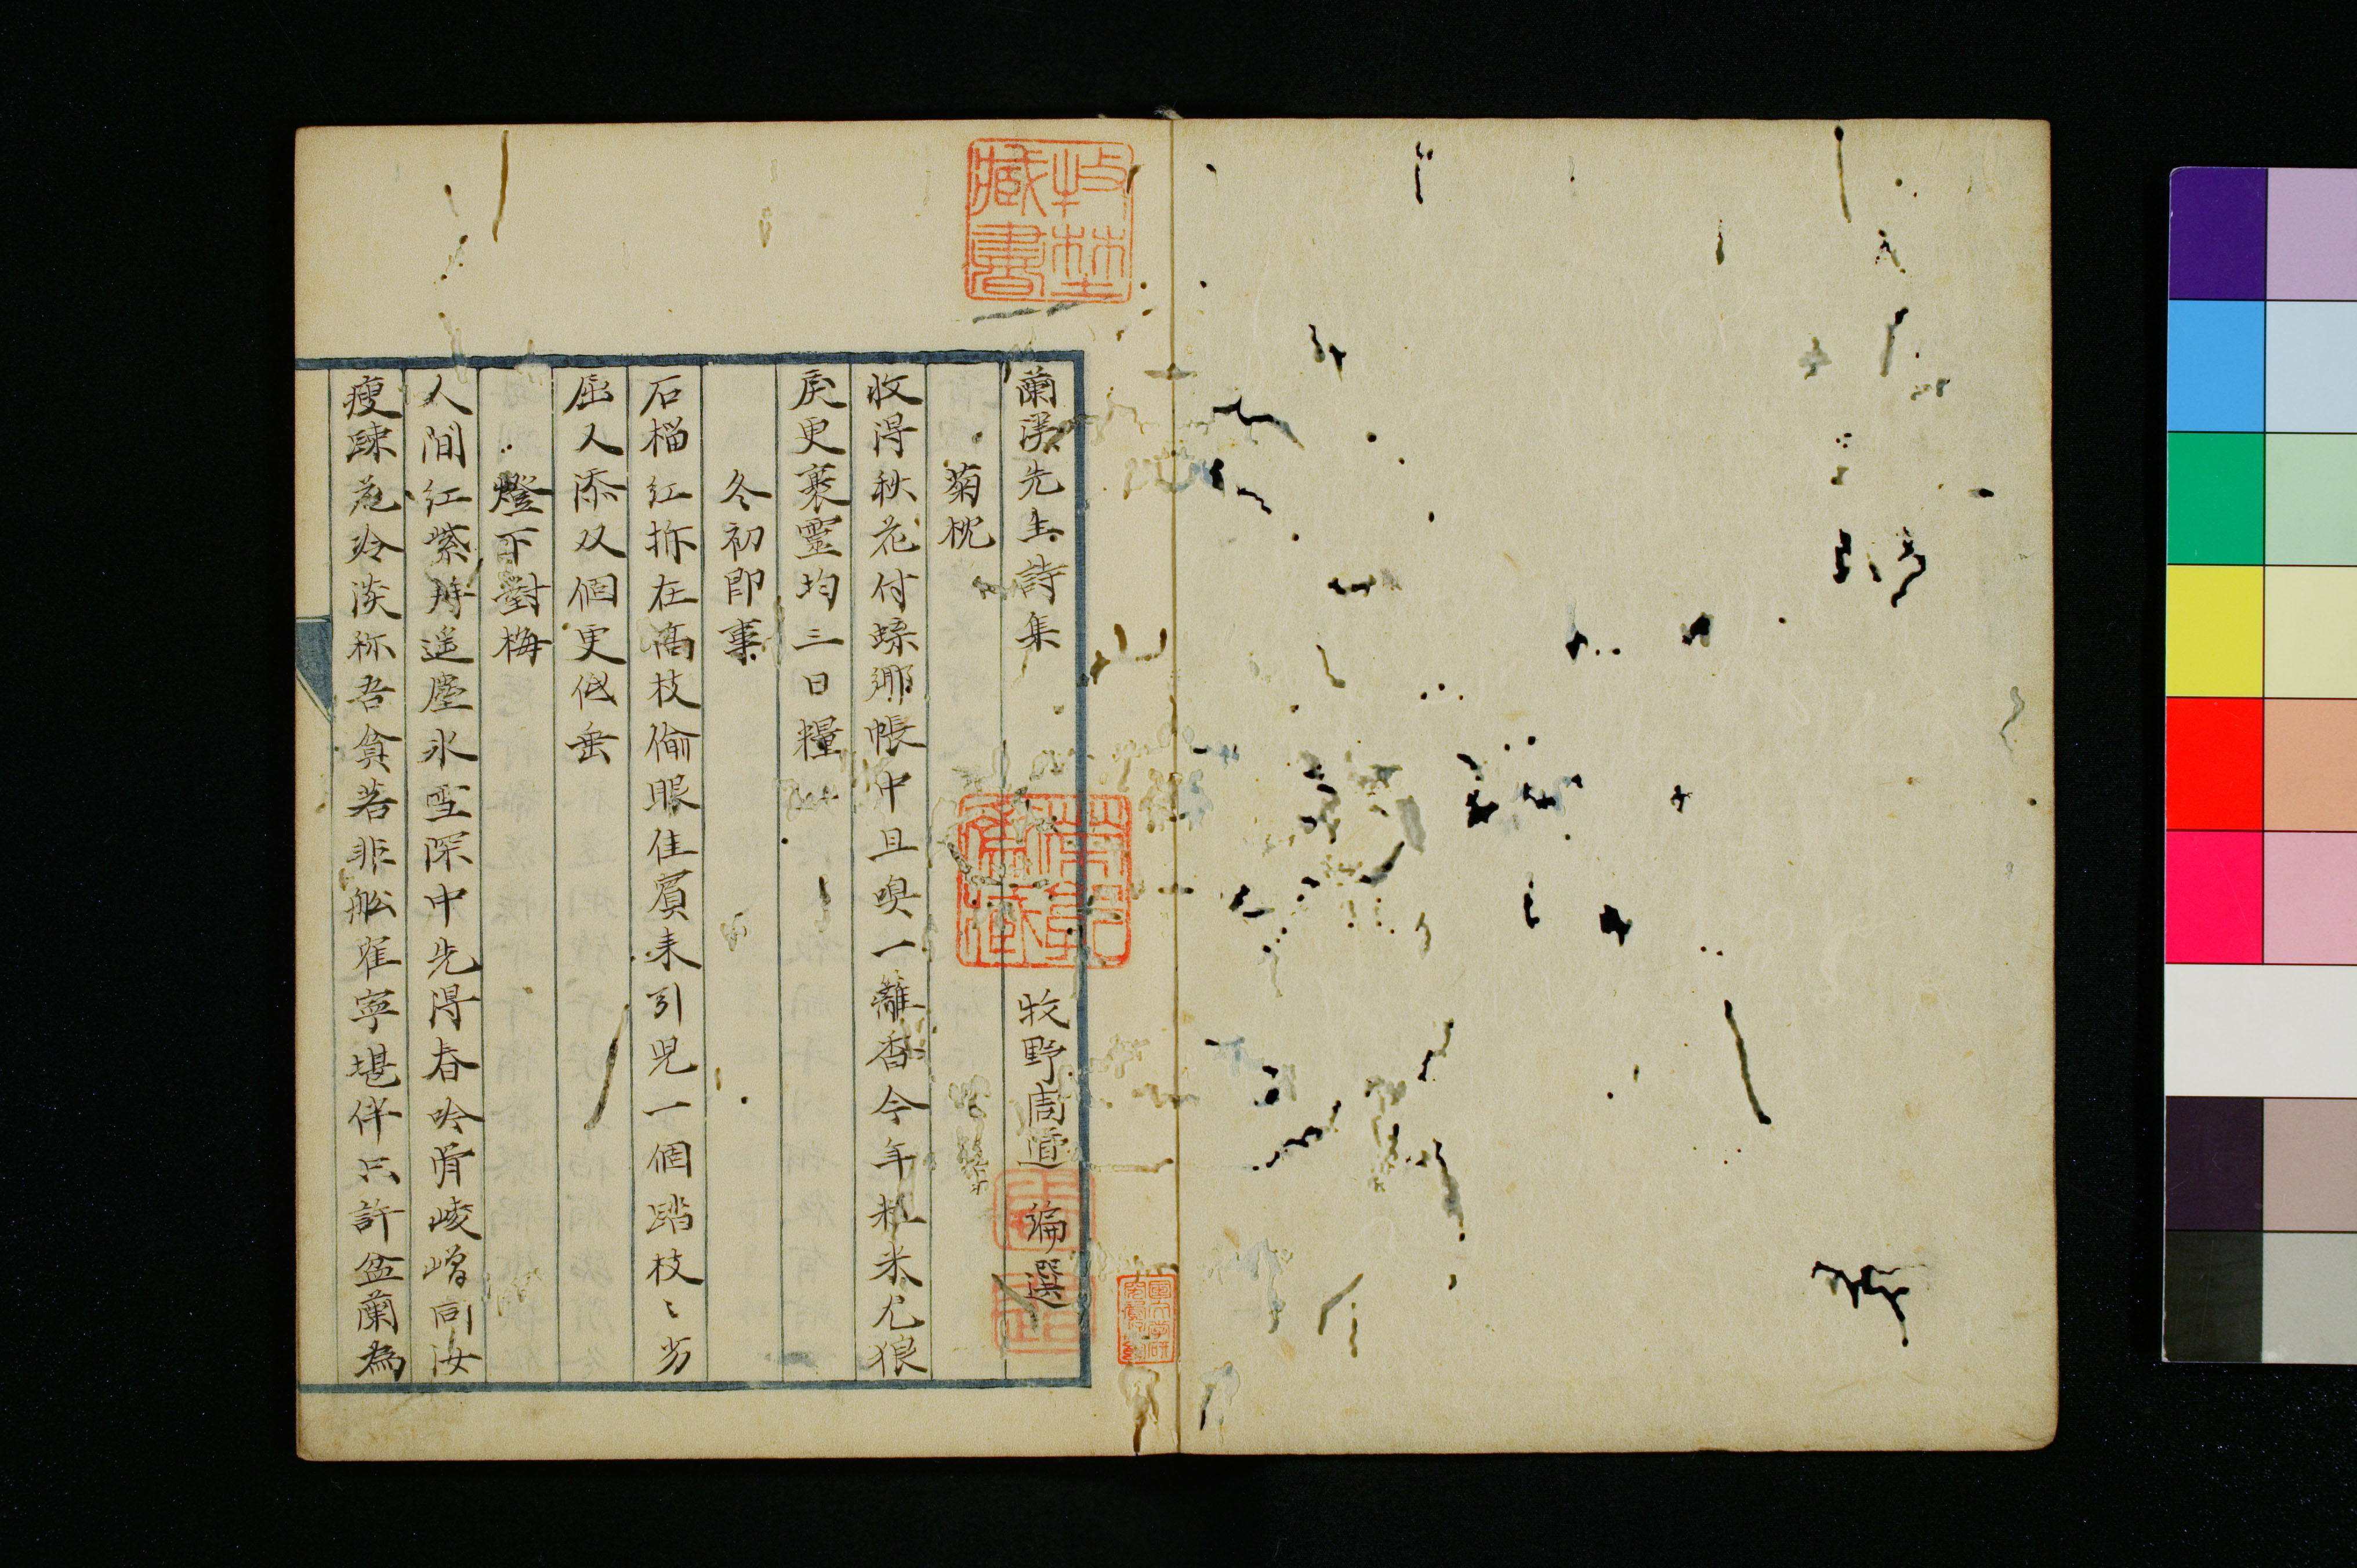 蘭溪先生詩集 牧野周道 編選
菊枕
收得秋花付 帳中且嗅一籬香今年粒米尤狼
戾更裹靈均三日糧
冬初即事
石榴紅拆在高枝偷眼佳賓来引兒一個踏枝〻劣
屈人添双個更低垂
燈下對梅
人間紅紫時遥塵氷雪深中先得春吟骨崚嶒同汝
瘦踈花冷淡称吾貧若非船雀寧堪伴只許盆蘭為
牧埜藏書